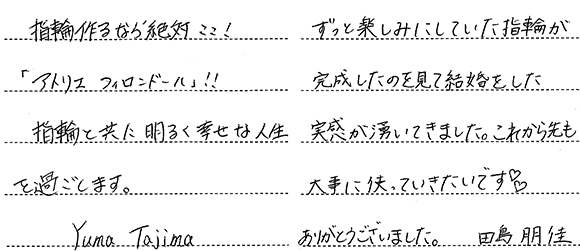 指輪作るなら絶対ココ!
「アトリエ フィロンドール」!!
指輪と共に明るく幸せな人生
を過ごします。
Yuma Tajima
ずっと楽しみにしていた指輪が
完成したのを見て結婚をした
実感が湧いてきました。これから先も
大事に使っていきたいです♡
ありがとうございました。 田島 朋佳